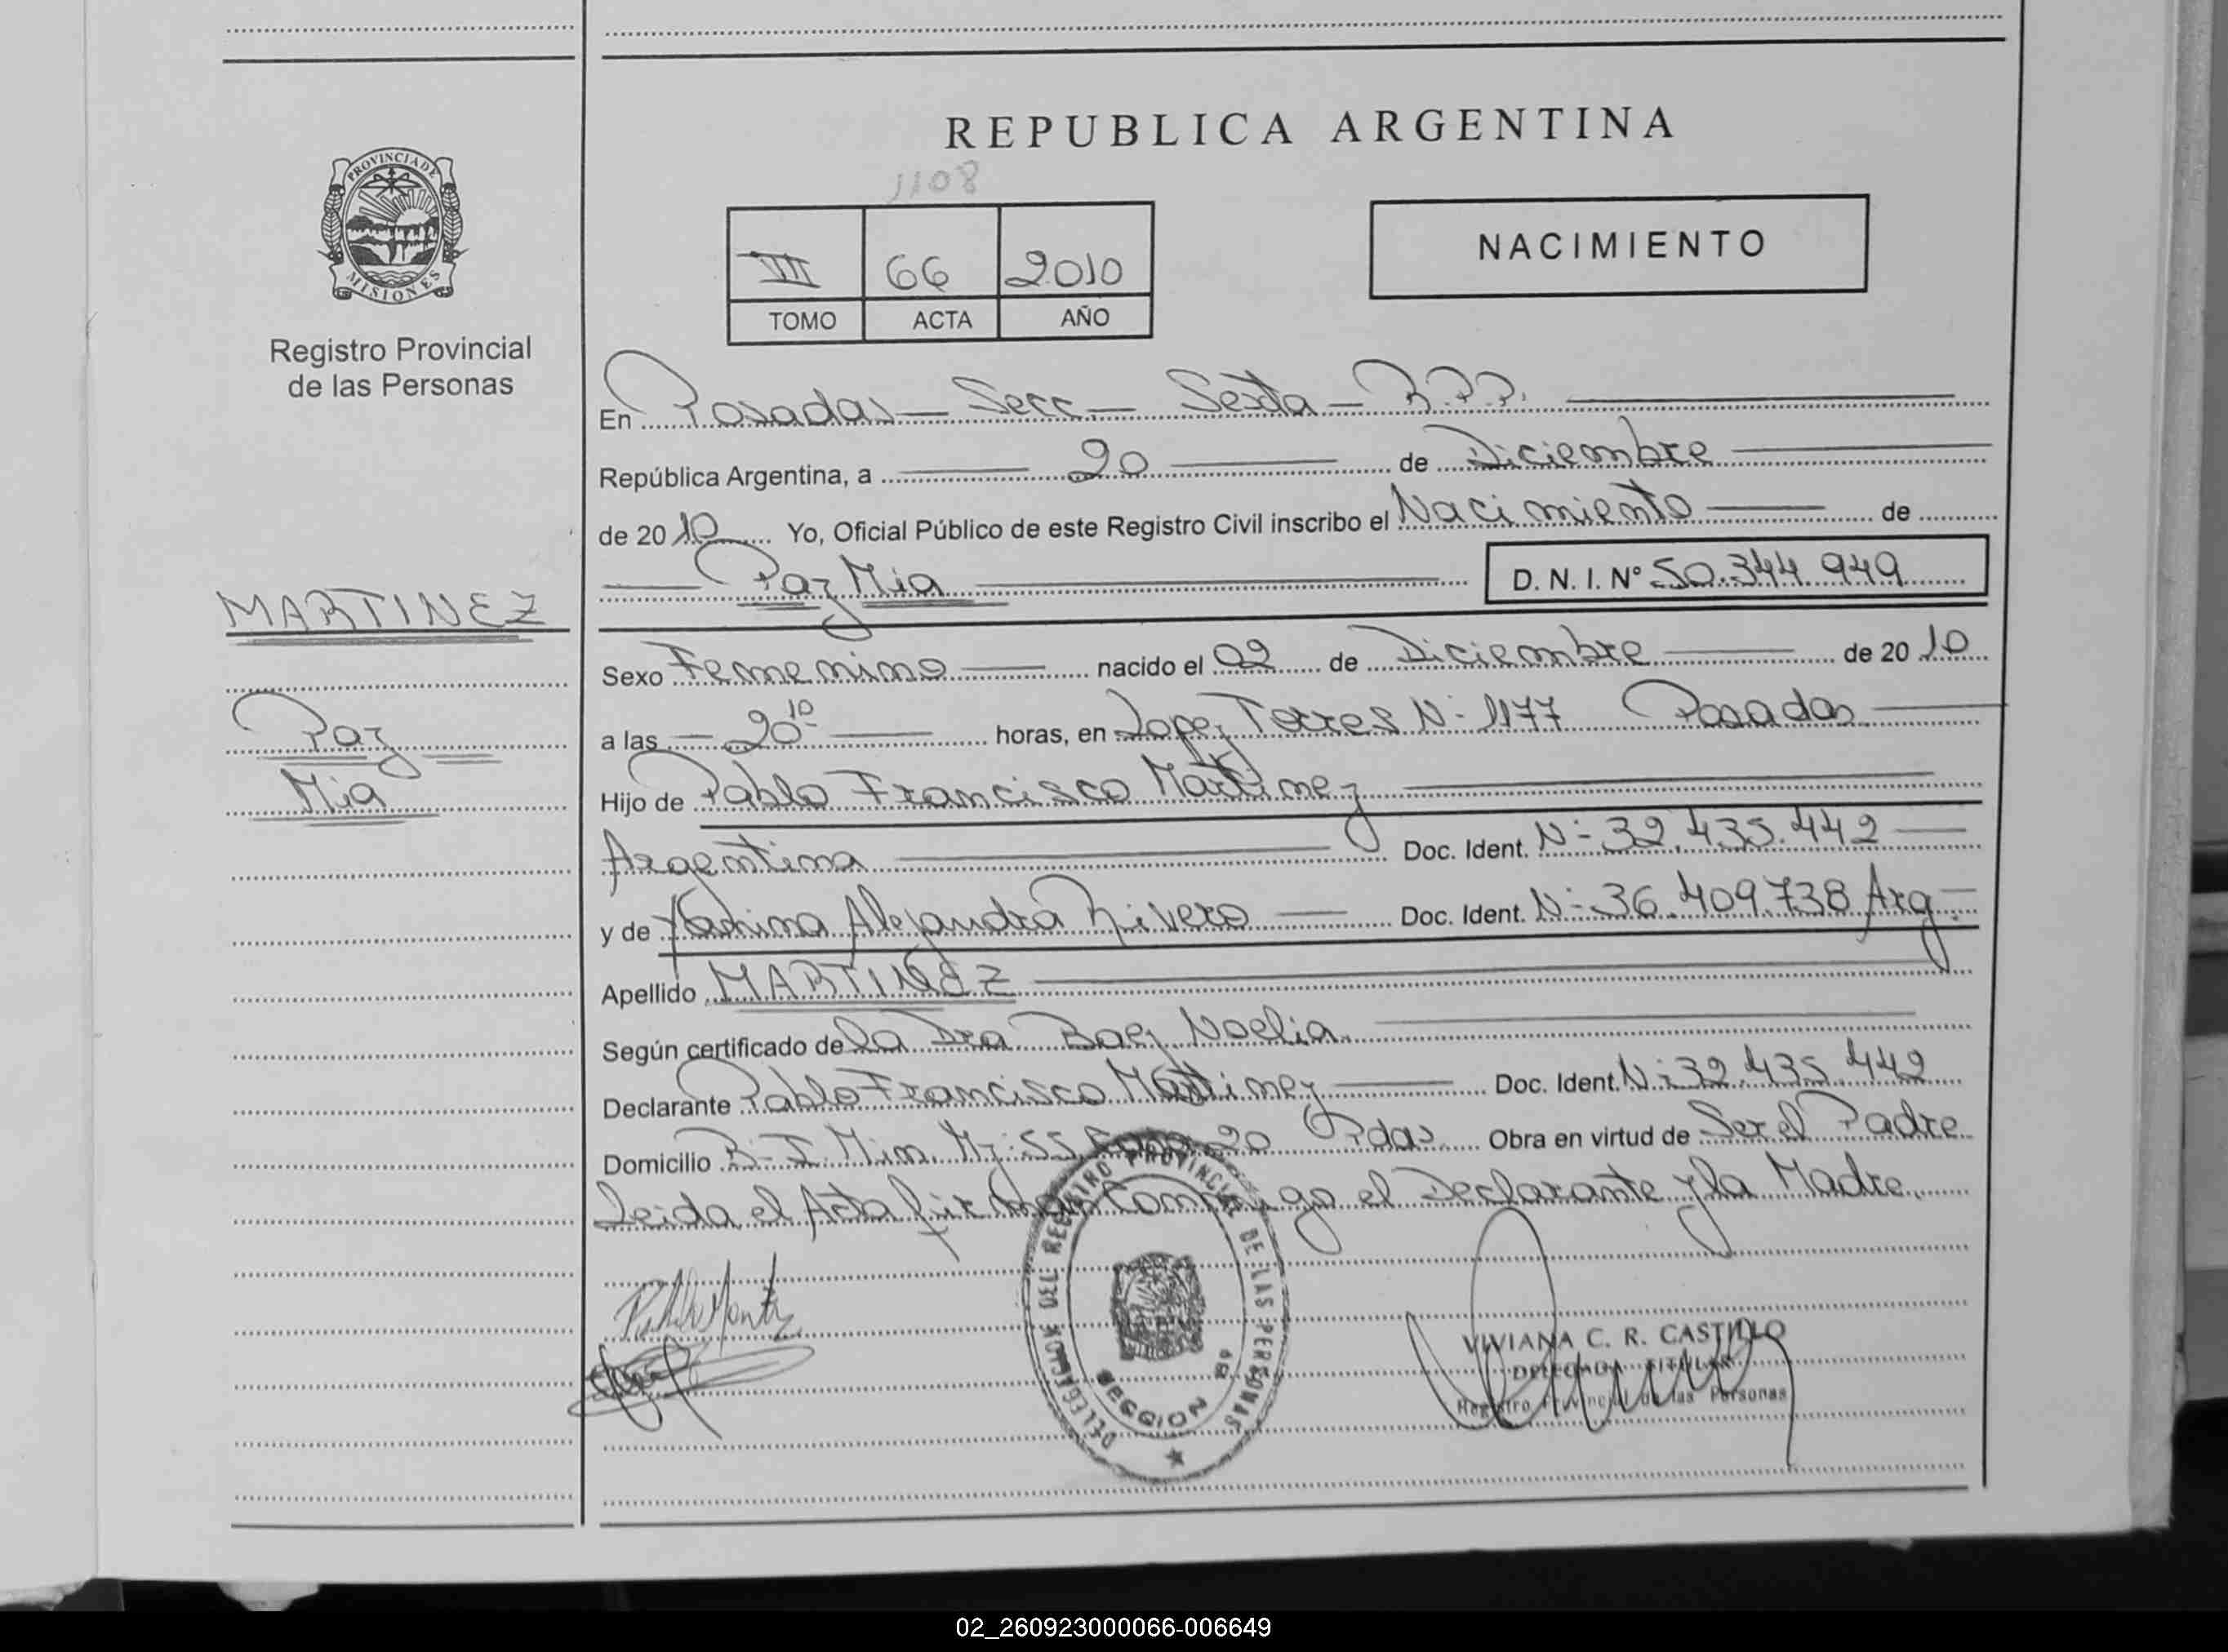 REPUBLICA ARGENTINA
1108
PROVINCIA DE
MISIONES
Registro Provincial
de las Personas
III 66 2010
TOMO ACTA AÑO
NACIMIENTO
En Posadas - Secc - Sexta - R.P.P.
República Argentina, a 20 de Diciembre
de 2010 Yo, Oficial Público de este Registro Civil inscribo el Nacimiento de
Paz Mia D. N. I. N° 50.344.949
MARTINEZ
Paz
Mia
Sexo Femenino nacido el 02 de Diciembre de 2010
a las 20 10 horas, en Lopez Torres N- 1177 Posadas
Hijo de Pablo Francisco Martinez
Argentina Doc. Ident. N- 32.435.442
y de Yanina Alejandra Rivero Doc. Ident. N- 36.409.738 Arg.
Apellido MARTINEZ
Según certificado de la Dra Baez Noelia
Declarante Pablo Francisco Martinez Doc. Ident. N- 32.435.442
Domicilio Mz: 55 20 Pdas Obra en virtud de Ser el Padre
Leida el Acta firman Conmigo el Declarante y la Madre.
DELEGACION DEL REGISTRO PROVINCIAL DE LAS PERSONAS
SECCION 6ª
VIVIANA C. R. CASTILLO
DELEGADA TITULAR
Registro Provincial de las Personas
02_260923000066-006649